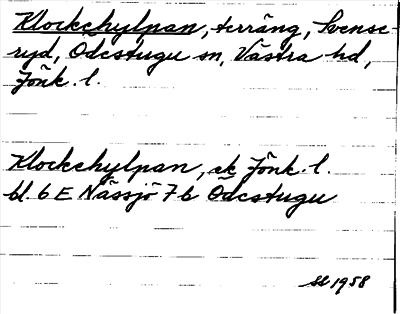 Klockehylpan, terräng, Svense-
ryd, Ödestugu sn, Västra hd,
Jönk. l.
Klockehylpan, ek Jönk. l.
bl. 6 E Nässjö 7 b Ödestugu
1958